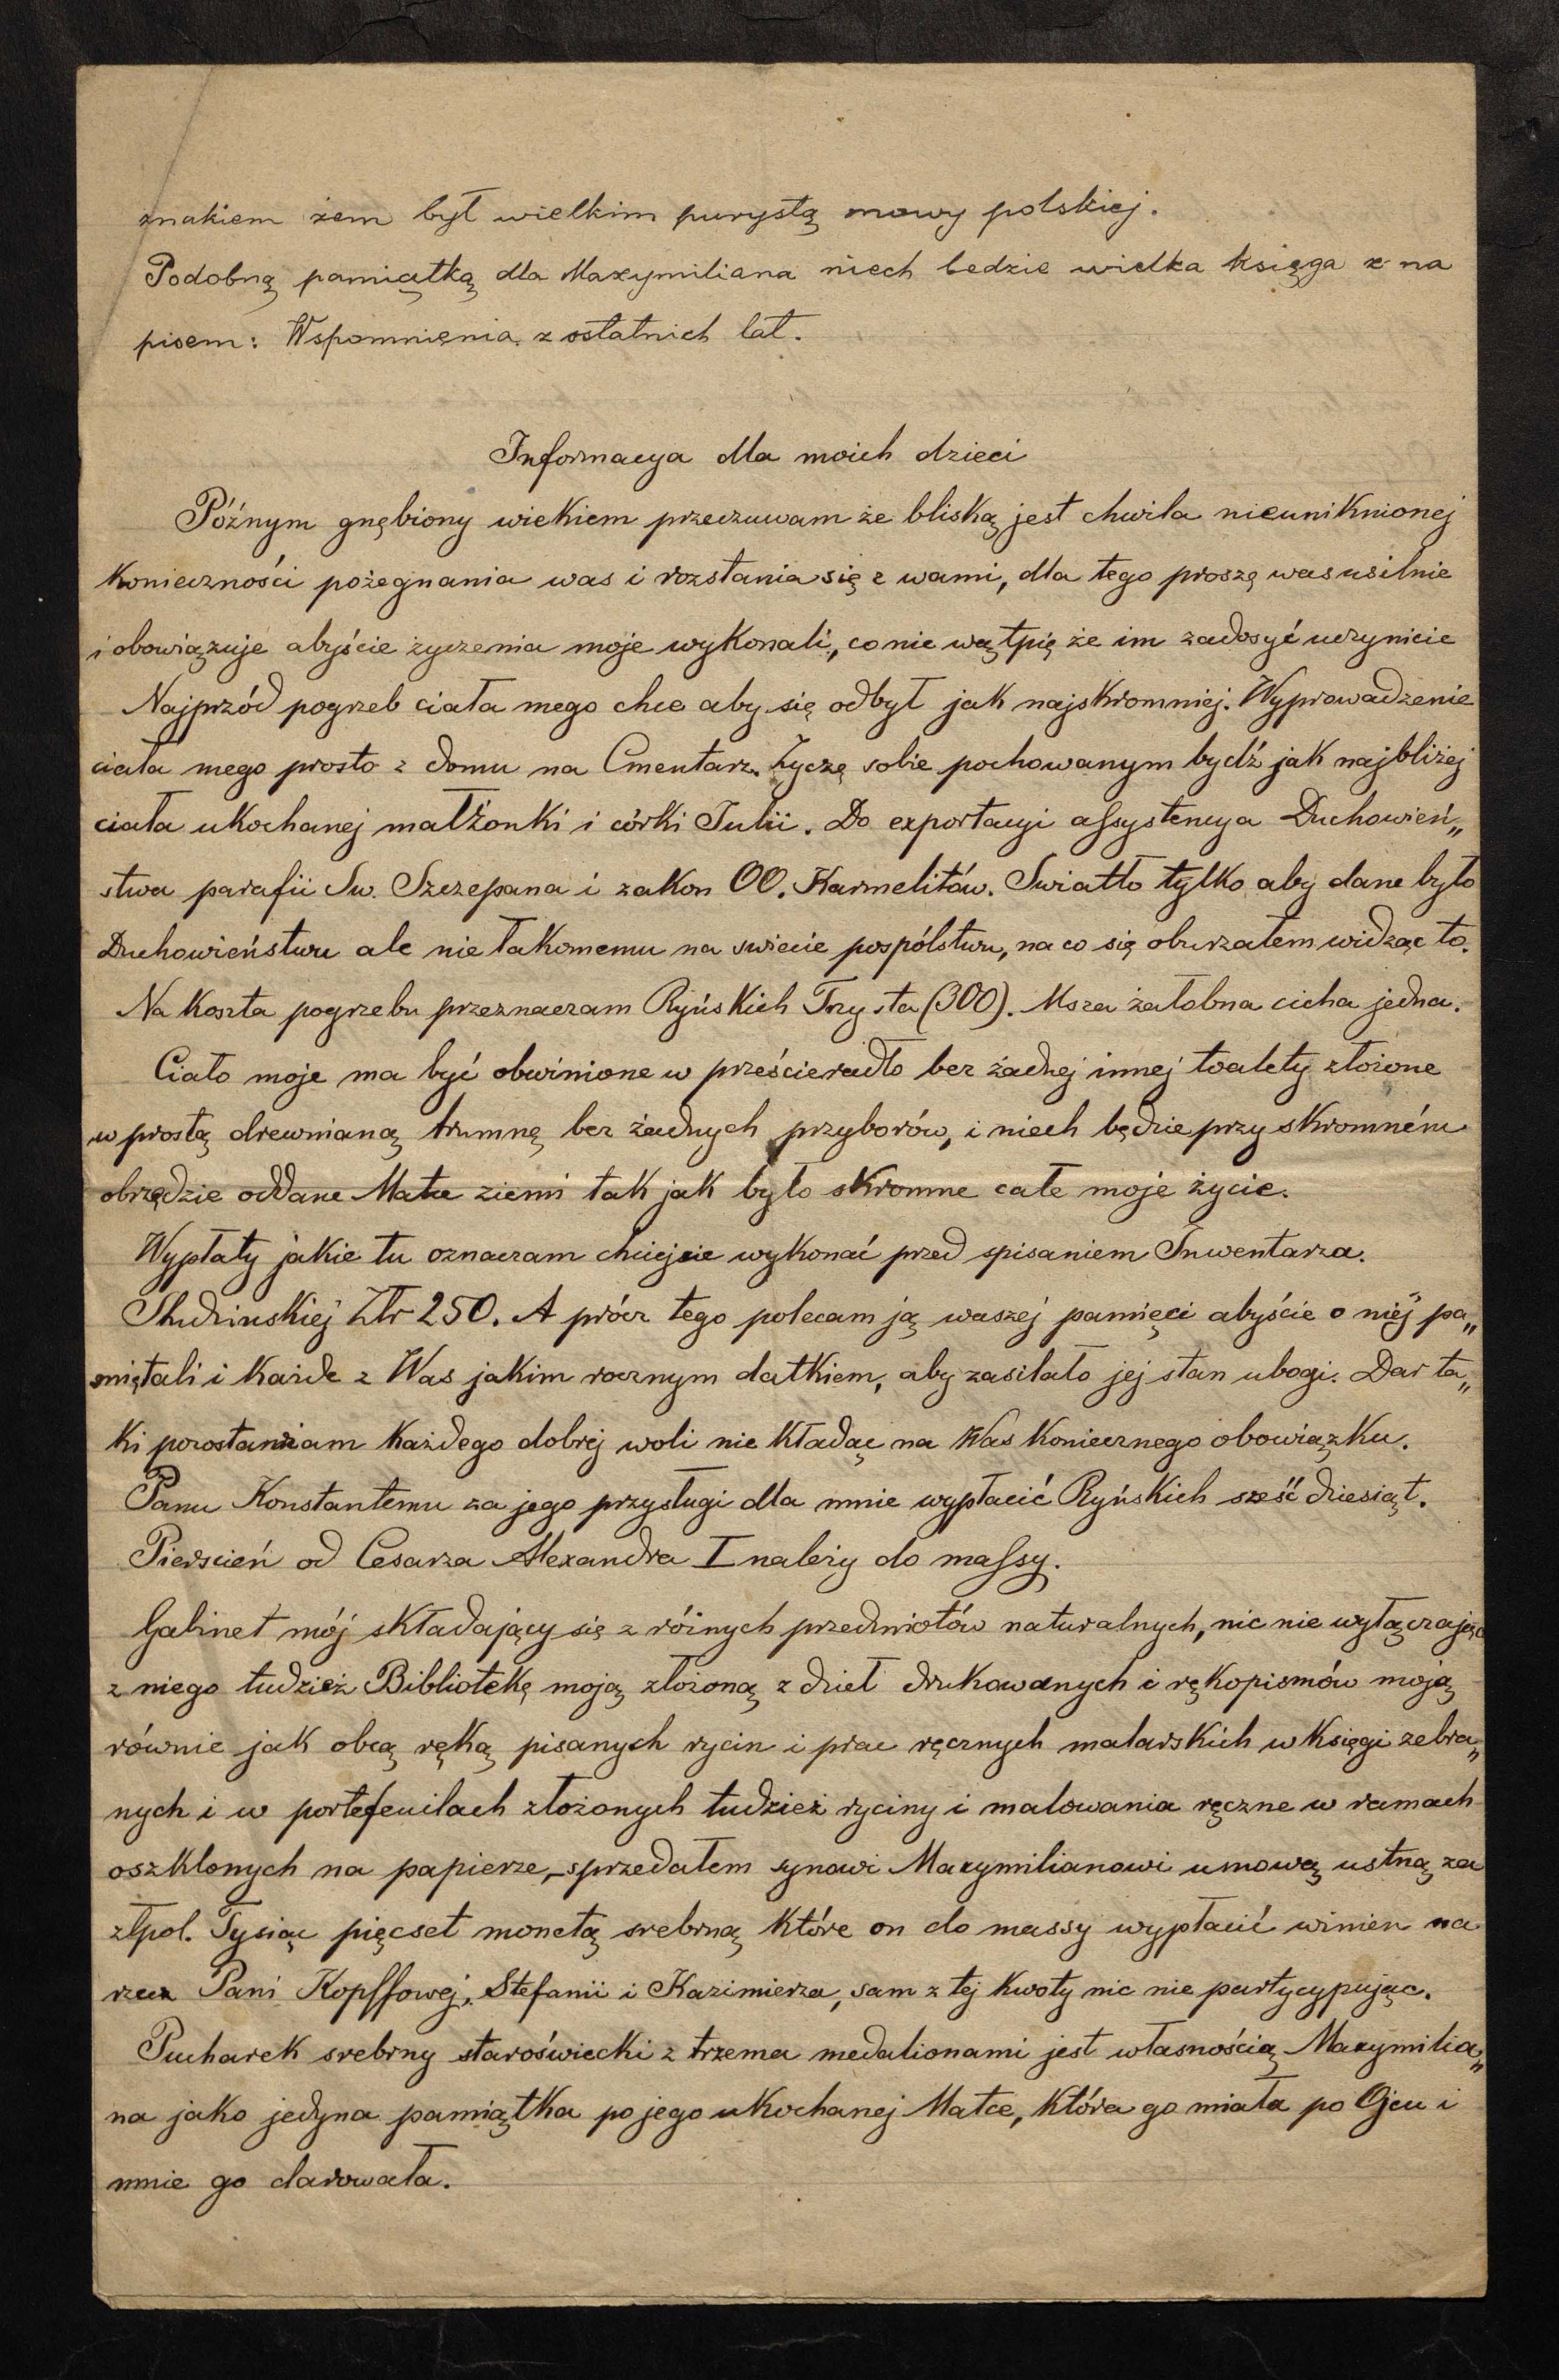 znakiem żem był wielkim purystą mowy polskiej.
Podobną pamiątką dla Maxymiliana niech bedzie wielka księga z na
pisem: Wspomnienia z ostatnich lat.
Informacya dla moich dzieci
Późnym gnębiony wiekiem przeczuwam że bliską jest chwila nieuniknionej
konieczności pożegnania was i rozstania się z wami, dla tego proszę was usilnie
i obowiązuje abyście życzenia moje wykonali, co nie wątpię że im zadosyć uczynicie
Najprzód pogrzeb ciała mego chce aby się odbył jak najskromniej. Wyprowadzenie
ciała mego prosto z domu na Cmentarz. Życzę sobie pochowanym bydź jak najbliżej
ciała ukochanej małżonki i córki Julii. Do exportacyi assystencya Duchowień„
stwa parafii Sw. Szczepana i zakon OO. Karmelitów. Swiatło tylko aby dane było
Duchowieństwu ale nie łakomemu na swiecie pospólstwu, na co się oburzałem widząc to.
Na koszta pogrzebu przeznaczam Ryńskich Trzysta (300). Msza żałobna cicha jedna.
Ciało moje ma być obwinione w prześcieradło bez żadnej innej toalety złożone
w prostą drewnianą trumnę bez żadnych przyborów, i niech będzie przy skromném
obrzędzie oddane Matce ziemi tak jak było skromne całe moje życie.
Wypłaty jakie tu oznaczam chciejcie wykonać przed spisaniem Inwentarza.
Studzinskiej Złr 250. A prócz tego polecam ją waszej pamięci abyście o niéj pa„
miętali i każde z Was jakim rocznym datkiem, aby zasilało jej stan ubogi. Dar ta„
ki pozostawiam każdego dobrej woli nie kładąc na Was koniecznego obowiązku.
Panu Konstantemu za jego przysługi dla mnie wypłacić Ryńskich sześć dziesiąt.
Pierscień od Cesarza Alexandra I należy do massy.
Gabinet mój składający się z różnych przedmiotów naturalnych, nic nie wyłączając
z niego tudzież Bibliotekę moją złożoną z dzieł drukowanych i rękopismów moją
równie jak obcą ręką pisanych rycin i prac ręcznych malarskich w księgi zebra„
nych i w portefeuilach złożonych tudzież ryciny i malowania ręczne w ramach
oszklonych na papierze, sprzedałem synowi Maxymilianowi umową ustną za
złpol. Tysiąc pięcset monetą srebrną które on do massy wypłacić winien na
rzecz Pani Kopffowej, Stefanii i Kazimierza, sam z tej kwoty nic nie partycypując.
Pucharek srebrny staroświecki z trzema medalionami jest własnością Maxymilia„
na jako jedyna pamiątka po jego ukochanej Matce, która go miała po Ojcu i
mnie go darowała.